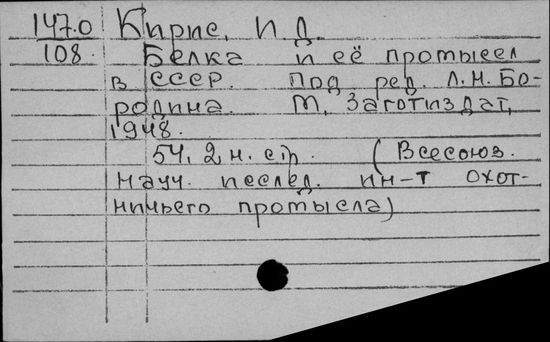 147.0 Кирис, И.Д.
108. Белка и её промысел
в СССР. Под ред. Л.Н. Бо-
родина. М, Заготиздат,
1948.
54, 2 н. с.
(Всесоюз.
науч. исслед. ин-т охот-
ничьего промысла)